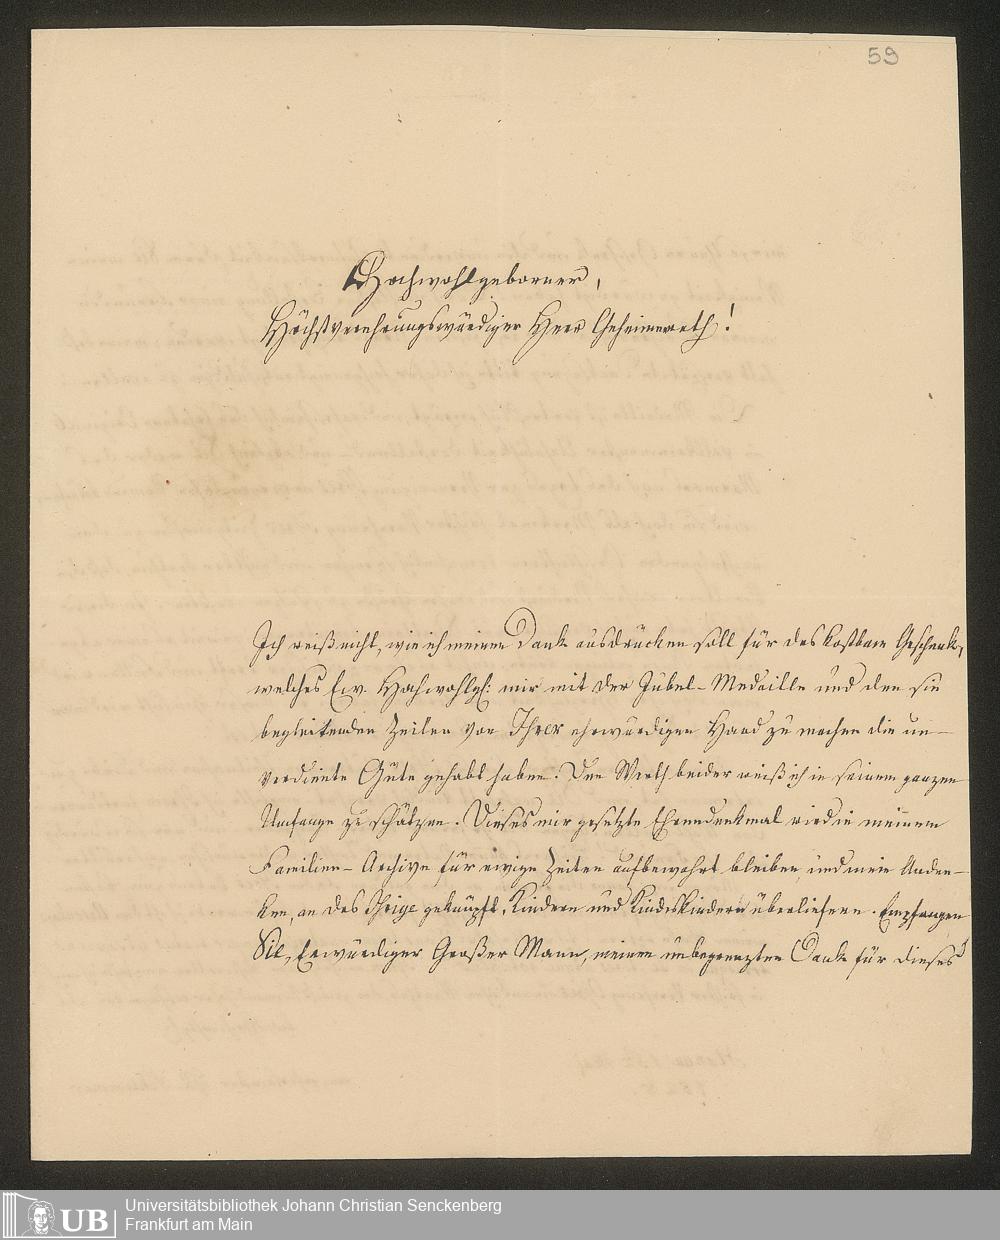 59
Hochwohlgeborner,
Höchstverehrungswürdiger Herr Geheimerath!
Ich weiß nicht, wie ich meinen Dank ausdrücken soll für das kostbare Geschenk,
welches Ew. Hochwohlgb: mir mit der Jubel-Medaille und den sie
begleitenden Zeilen von Ihrer ehrwürdigen Hand zu machen die un-
verdiente Güte gehabt haben. Den Werth beider weiß ich in seinem ganzen
Umfange zu schätzen. Dieses mir gesetzte Ehrendenkmal wird in meinem
Familien-Archive für ewige Zeiten aufbewahrt bleiben, und mein Anden-
ken, an das Ihrige geknüpft, Kindern und Kindeskindern überliefern. Empfangen
Sie, Erwürdiger Großer Mann, meinen unbegrenzten Dank für dieses
Universitätsbibliothek Johann Christian Senckenberg
Frankfurt am Main
UB